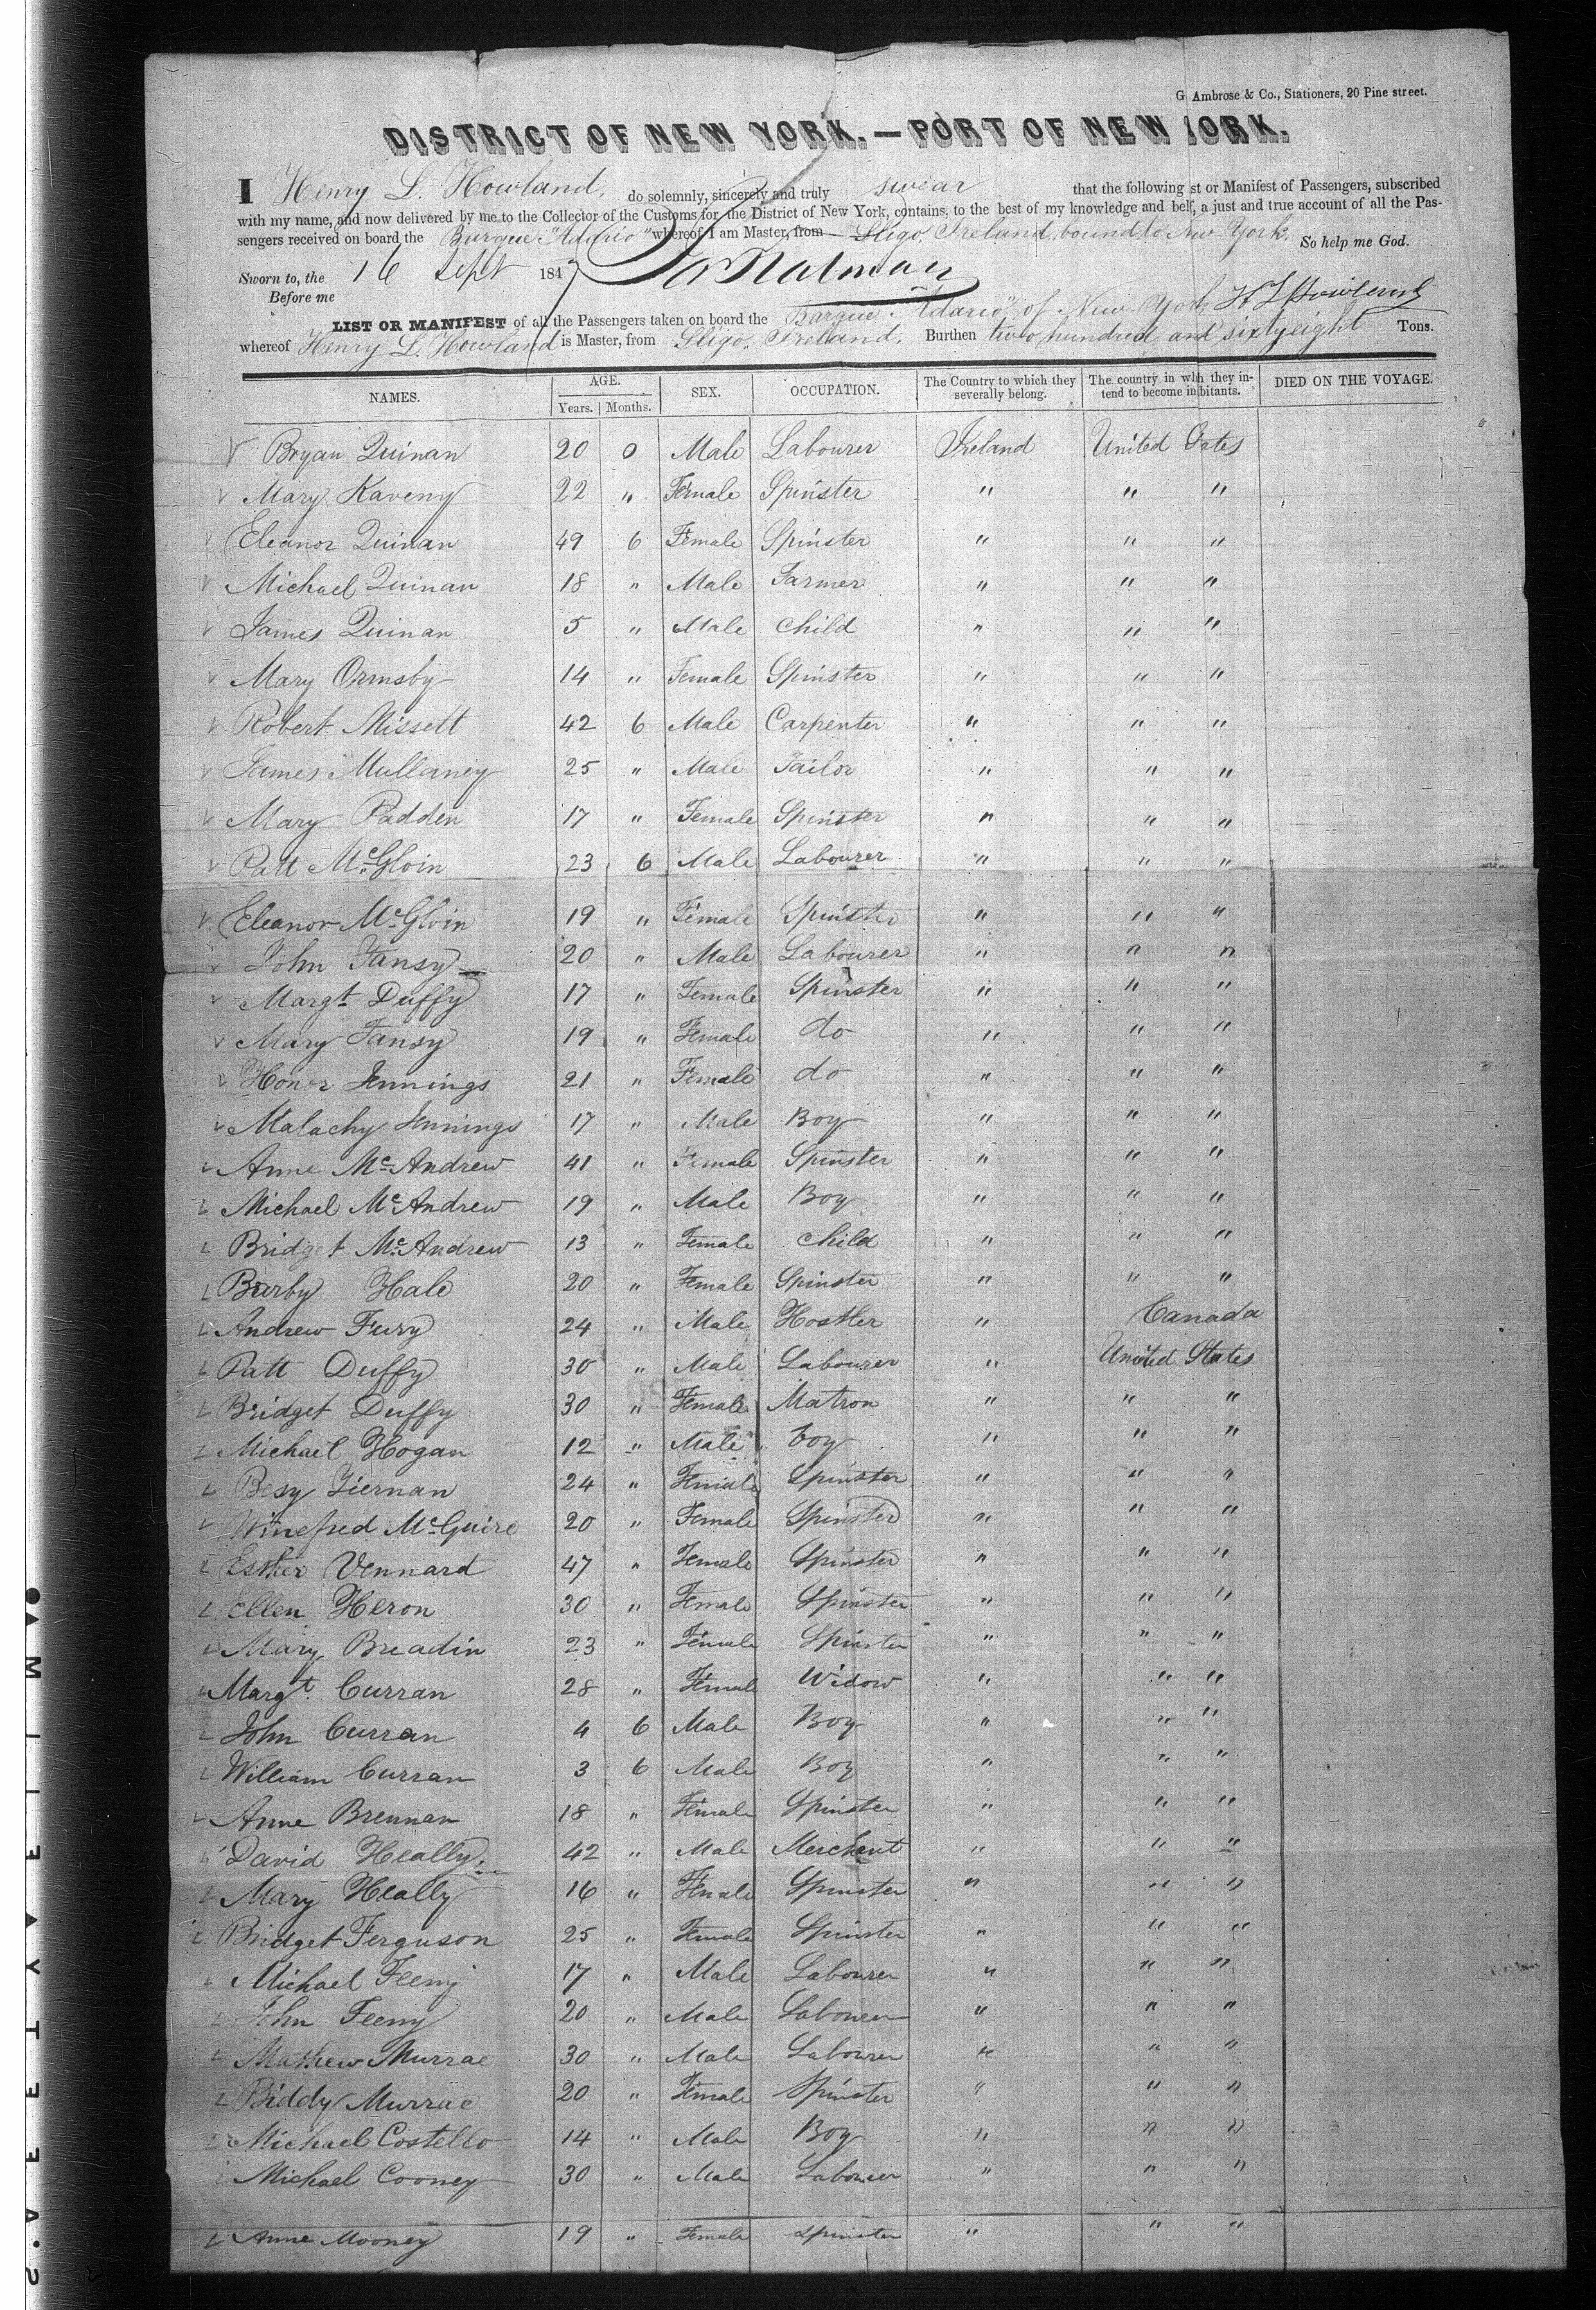 G. Ambrose & Co., Stationers, 20 Pine street.
DISTRICT OF NEW YORK.—PORT OF NEW YORK.
I Henry L. Howland, do solemnly, sincerely and truly swear that the following st or Manifest of Passengers, subscribed
with my name, and now delivered by me to the Collector of the Customs for the District of New York, contains, to the best of my knowledge and belf, a just and true account of all the Pas-
sengers received on board the Barque "Adario" whereof I am Master, from Sligo, Ireland, bound to New York. So help me God.
Sworn to, the 16 Sept 1847
Before me
H L Howland
LIST OR MANIFEST of all the Passengers taken on board the Barque "Adario", of New York
whereof Henry L. Howland is Master, from Sligo, Ireland, Burthen two hundred and sixty eight Tons.
NAMES. AGE. SEX. OCCUPATION. The Country to which they severally belong. The country in whh they in-tend to become inbitants. DIED ON THE VOYAGE.
Years. Months.
Bryan Quinan 20 0 Male Labourer Ireland United States
Mary Kaveny 22 " Female Spinster " " "
Eleanor Quinan 49 6 Female Spinster " " "
Michael Quinan 18 " Male Farmer " " "
James Quinan 5 " Male Child " " "
Mary Ormsby 14 " Female Spinster " " "
Robert Missett 42 6 Male Carpenter " " "
James Mullaney 25 " Male Tailor " " "
Mary Padden 17 " Female Spinster " " "
Patt McGloin 23 6 Male Labourer " " "
Eleanor McGloin 19 " Female Spinster " " "
John Tansy 20 " Male Labourer " " "
Margt Duffy 17 " Female Spinster " " "
Mary Tansy 19 " Female do " " "
Honor Jennings 21 " Female do " " "
Malachy Jennings 17 " Male Boy " " "
Anne McAndrew 41 " Female Spinster " " "
Michael McAndrew 19 " Male Boy " " "
Bridget McAndrew 13 " Female Child " " "
Barby Hale 20 " Female Spinster " " "
Andrew Fury 24 " Male Hostler " Canada
Patt Duffy 30 " Male Labourer " United States
Bridget Duffy 30 " Female Matron " " "
Michael Hogan 12 " Male boy " " "
Besy Tiernan 24 " Female Spinster " " "
Winefred McGuire 20 " Female Spinster " " "
Esther Vennard 47 " Female Spinster " " "
Ellen Heron 30 " Female Spinster " " "
Mary Breadin 23 " Female Spinster " " "
Margt. Curran 28 " Female Widow " " "
John Curran 4 6 Male Boy " " "
William Curran 3 6 Male Boy " " "
Anne Brennan 18 " Female Spinster " " "
David Heally 42 " Male Merchant " " "
Mary Heally 16 " Female Spinster " " "
Bridget Ferguson 25 " Female Spinster " " "
Michael Feeny 17 " Male Labourer " " "
John Feeny 20 " Male Labourer " " "
Mathew Murrae 30 " Male Labourer " " "
Biddy Murrae 20 " Female Spinster " " "
Michael Costello 14 " Male Boy " " "
Michael Cooney 30 " Male Labourer " " "
Anne Mooney 19 " Female Spinster " " "